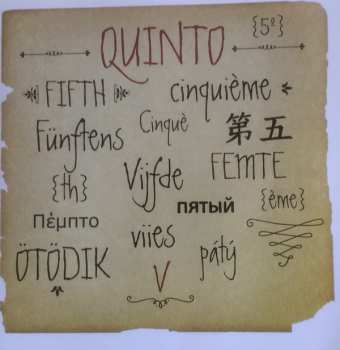 QUINTO {5º}
FIFTH cinquième
Fünftens Cinquè 第五
{th} Vijfde FEMTE
пятый {ème}
Πέμπτο
viies pátý
ÖTÖDIK V